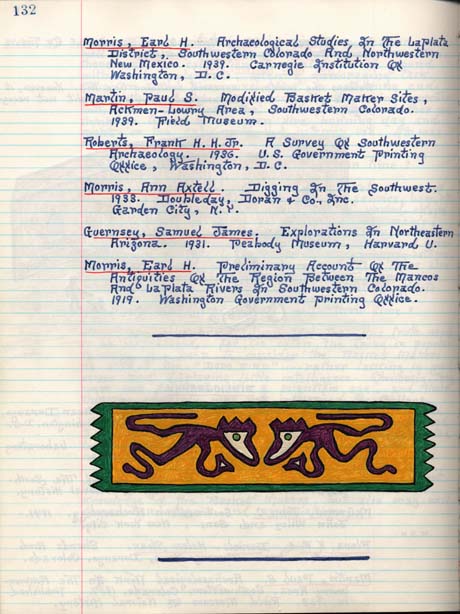 132
Morris, Earl H. Archaeological Studies In The La Plata
District, Southwestern Colorado And Northwestern
New Mexico. 1939. Carnegie Institution Of
Washington, D.C.
Martin, Paul S. Modified Basket Maker Sites,
Ackmen-Lowry Area, Southwestern Colorado.
1939. Field Museum.
Roberts, Frank H.H. Jr. A Survey Of Southwestern
Archaeology. 1936. U.S. Government Printing
Office, Washington, D.C.
Morris, Ann Axtell. Digging In The Southwest.
1933. Doubleday, Doran & Co., Inc.
Garden City, N.Y.
Guernsey, Samuel James. Explorations In Northeastern
Arizona. 1931. Peabody Museum, Harvard U.
Morris, Earl H. Preliminary Account Of The
Antiquities Of The Region Between The Mancos
And La Plata Rivers In Southwestern Colorado.
1919. Washington Government Printing Office.